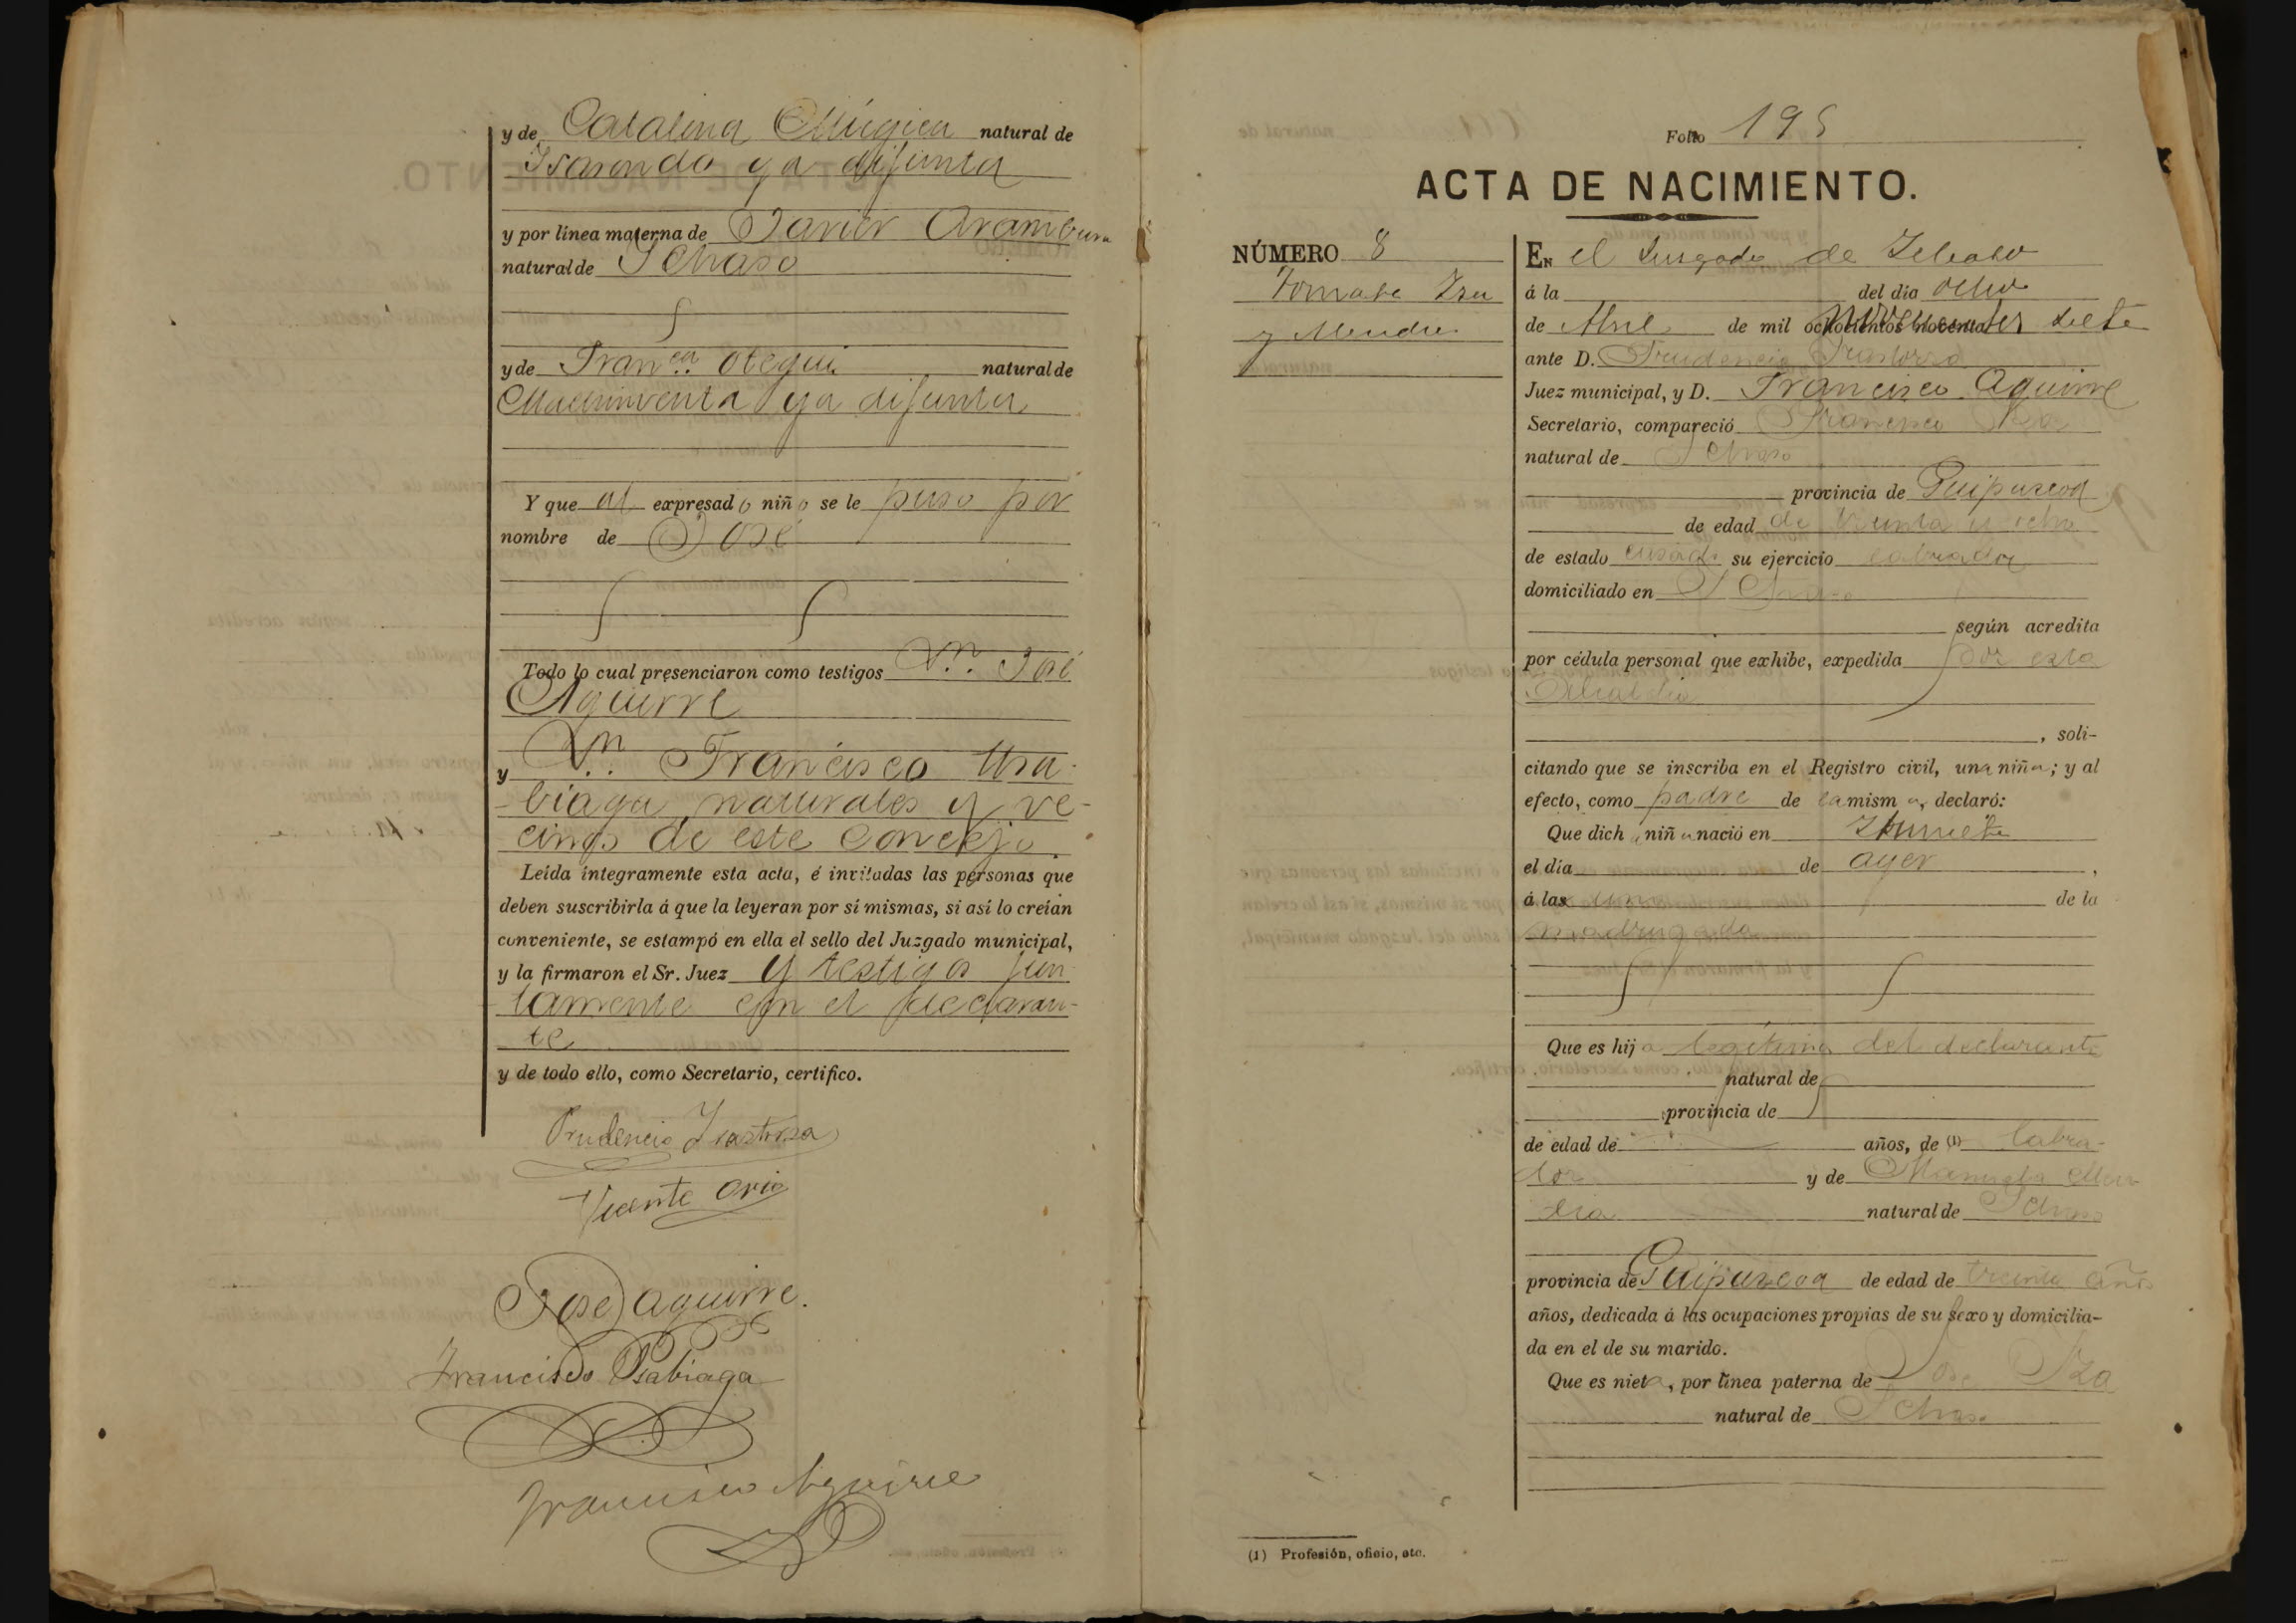 y de Catalina Múgica natural de
Isasondo ya difunta
y por línea materna de Javier Aramburu
natural de Ichaso
y de Fran.ca Otegui natural de
ya difunta
Y que al expresado niño se le puso por
nombre de José
Todo lo cual presenciaron como testigos Dn. José
Aguirre
y Dn. Francisco Usa-
biaga naturales y ve-
cinos de este Concejo.
Leída íntegramente esta acta, é invitadas las personas que
deben suscribirla á que la leyeran por sí mismas, si así lo creían
conveniente, se estampó en ella el sello del Juzgado municipal,
y la firmaron el Sr. Juez y testigos jun-
tamente con el declaran-
te
y de todo ello, como Secretario, certifico.
Prudencio Irastorza
Vicente Orio
José Aguirre.
Francisco Usabiaga
Francisco Aguirre
Folio 195
ACTA DE NACIMIENTO.
NÚMERO 8
Tomasa Iza
y
EN el Jusgado de Ichaso
á la del día ocho
de Abril de mil ochocientos noventa siete
ante D. Prudencio Irastorza
Juez municipal, y D. Francisco Aguirre
Secretario, compareció Francisco Iza
natural de Ichaso
provincia de Guipuzcoa
de edad de treinta y ocho
de estado casado su ejercicio labrador
domiciliado en Ichaso
según acredita
por cédula personal que exhibe, expedida por esta
Alcaldia
, soli-
citando que se inscriba en el Registro civil, una niña; y al
efecto, como padre de la misma, declaró:
Que dicha niña nació en
el día de ayer,
á las una de la
madrugada
Que es hija legítima del declarante
natural de
provincia de
de edad de años, de (1) labra-
dor y de Manuela
natural de Ichaso
provincia de Guipuzcoa de edad de treinta años
años, dedicada á las ocupaciones propias de su sexo y domicilia-
da en el de su marido.
Que es nieta, por línea paterna de José Iza
natural de Ichaso
(1) Profesión, oficio, etc.